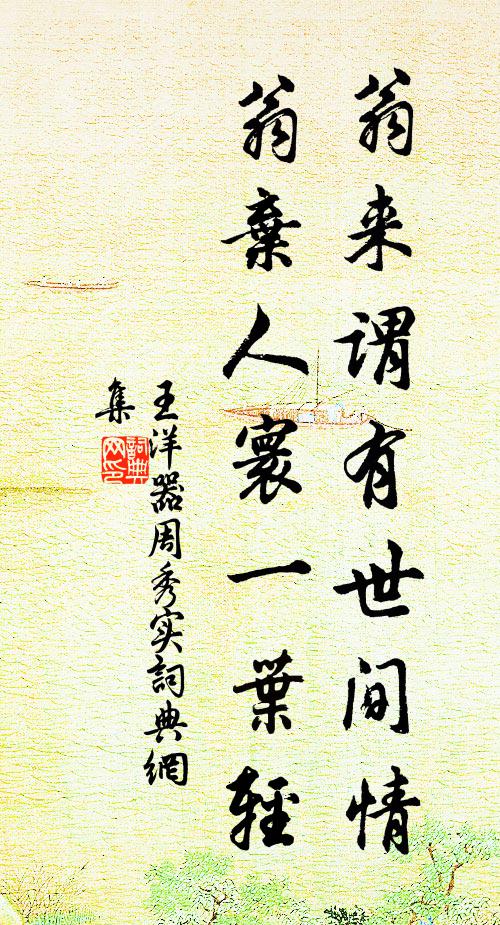 翁来谓有世间情
翁棄人寰一葉輕
王洋器周秀实詞典網
集
詞典网印